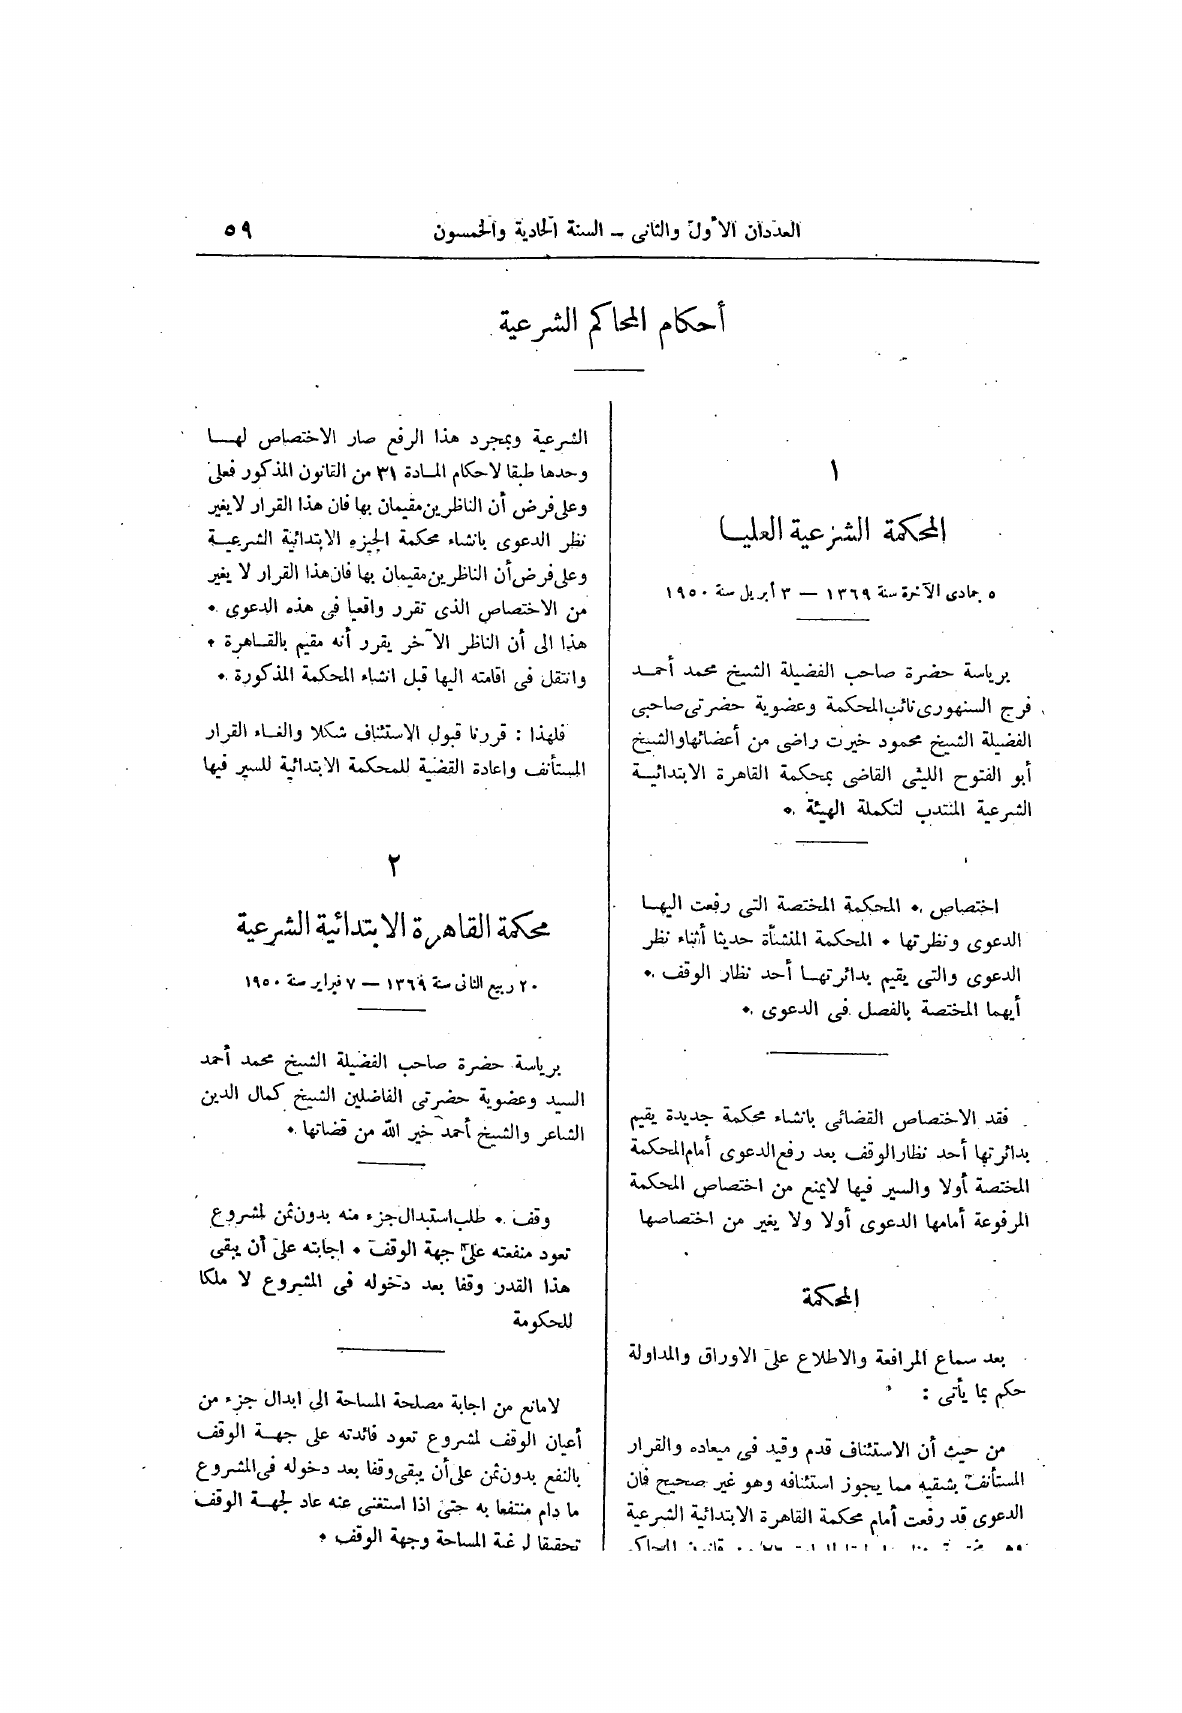 العددان الأول والثانى – السنة الحادية والخمسون
٥٩
أحكام المحاكم الشرعية
١
المحكمة الشرعية العليا
٥ جمادى الآخرة سنة ١٣٦٩ — ٣ أبريل سنة ١٩٥٠
برياسة حضرة صاحب الفضيلة الشيخ محمد أحمد
فرج السنهورى نائب المحكمة وعضوية حضرتى صاحبى
الفضيلة الشيخ محمود خيرت راضى من أعضائها والشيخ
أبو الفتوح الليثى القاضى بمحكمة القاهرة الابتدائية
الشرعية المنتدب لتكملة الهيئة .
اختصاص . المحكمة المختصة التى رفعت اليها
الدعوى ونظرتها . المحكمة المنشأة حديثا أثناء نظر
الدعوى والتى يقيم بدائرتها أحد نظار الوقف .
أيهما المختصة بالفصل فى الدعوى .
فقد الاختصاص القضائى بانشاء محكمة جديدة يقيم
بدائرتها أحد نظار الوقف بعد رفع الدعوى أمام المحكمة
المختصة أولا والسير فيها لايمنع من اختصاص المحكمة
المرفوعة أمامها الدعوى أولا ولا يغير من اختصاصها
المحكمة
بعد سماع المرافعة والاطلاع على الاوراق والمداولة
حكم بما يأتى :
من حيث أن الاستئناف قدم وقيد فى ميعاده والقرار
المستأنف بشقيه مما يجوز استئنافه وهو غير صحيح فان
الدعوى قد رفعت أمام محكمة القاهرة الابتدائية الشرعية
قانون المحاكم
الشرعية وبمجرد هذا الرفع صار الاختصاص لها
وحدها طبقا لاحكام المادة ٣١ من القانون المذكور فعلى
وعلى فرض أن الناظرين مقيمان بها فان هذا القرار لايغير
نظر الدعوى بانشاء محكمة الجيزه الابتدائية الشرعية
وعلى فرض أن الناظرين مقيمان بها فان هذا القرار لا يغير
من الاختصاص الذى تقرر واقعيا فى هذه الدعوى .
هذا الى أن الناظر الآخر يقرر أنه مقيم بالقاهرة .
وانتقل فى اقامته اليها قبل انشاء المحكمة المذكورة .
فلهذا : قررنا قبول الاستئناف شكلا والغاء القرار
المستأنف واعادة القضية للمحكمة الابتدائية للسير فيها
٢
محكمة القاهرة الابتدائية الشرعية
٢٠ ربيع الثانى سنة ١٣٦٩ — ٧ فبراير سنة ١٩٥٠
برياسة حضرة صاحب الفضيلة الشيخ محمد أحمد
السيد وعضوية حضرتى الفاضلين الشيخ كمال الدين
الشاعر والشيخ أحمد خير الله من قضاتها .
وقف . طلب استبدال جزء منه بدون ثمن لمشروع
تعود منفعته على جهة الوقف . اجابته على أن يبقى
هذا القدر وقفا بعد دخوله فى المشروع لا ملكا
للحكومة
لامانع من اجابة مصلحة المساحة الى ابدال جزء من
أعيان الوقف لمشروع تعود فائدته على جهة الوقف
بالنفع بدون ثمن على أن يبقى وقفا بعد دخوله فى المشروع
ما دام منتفعا به حتى اذا استغنى عنه عاد لجهة الوقف
تحقيقا لرغبة المساحة وجهة الوقف .